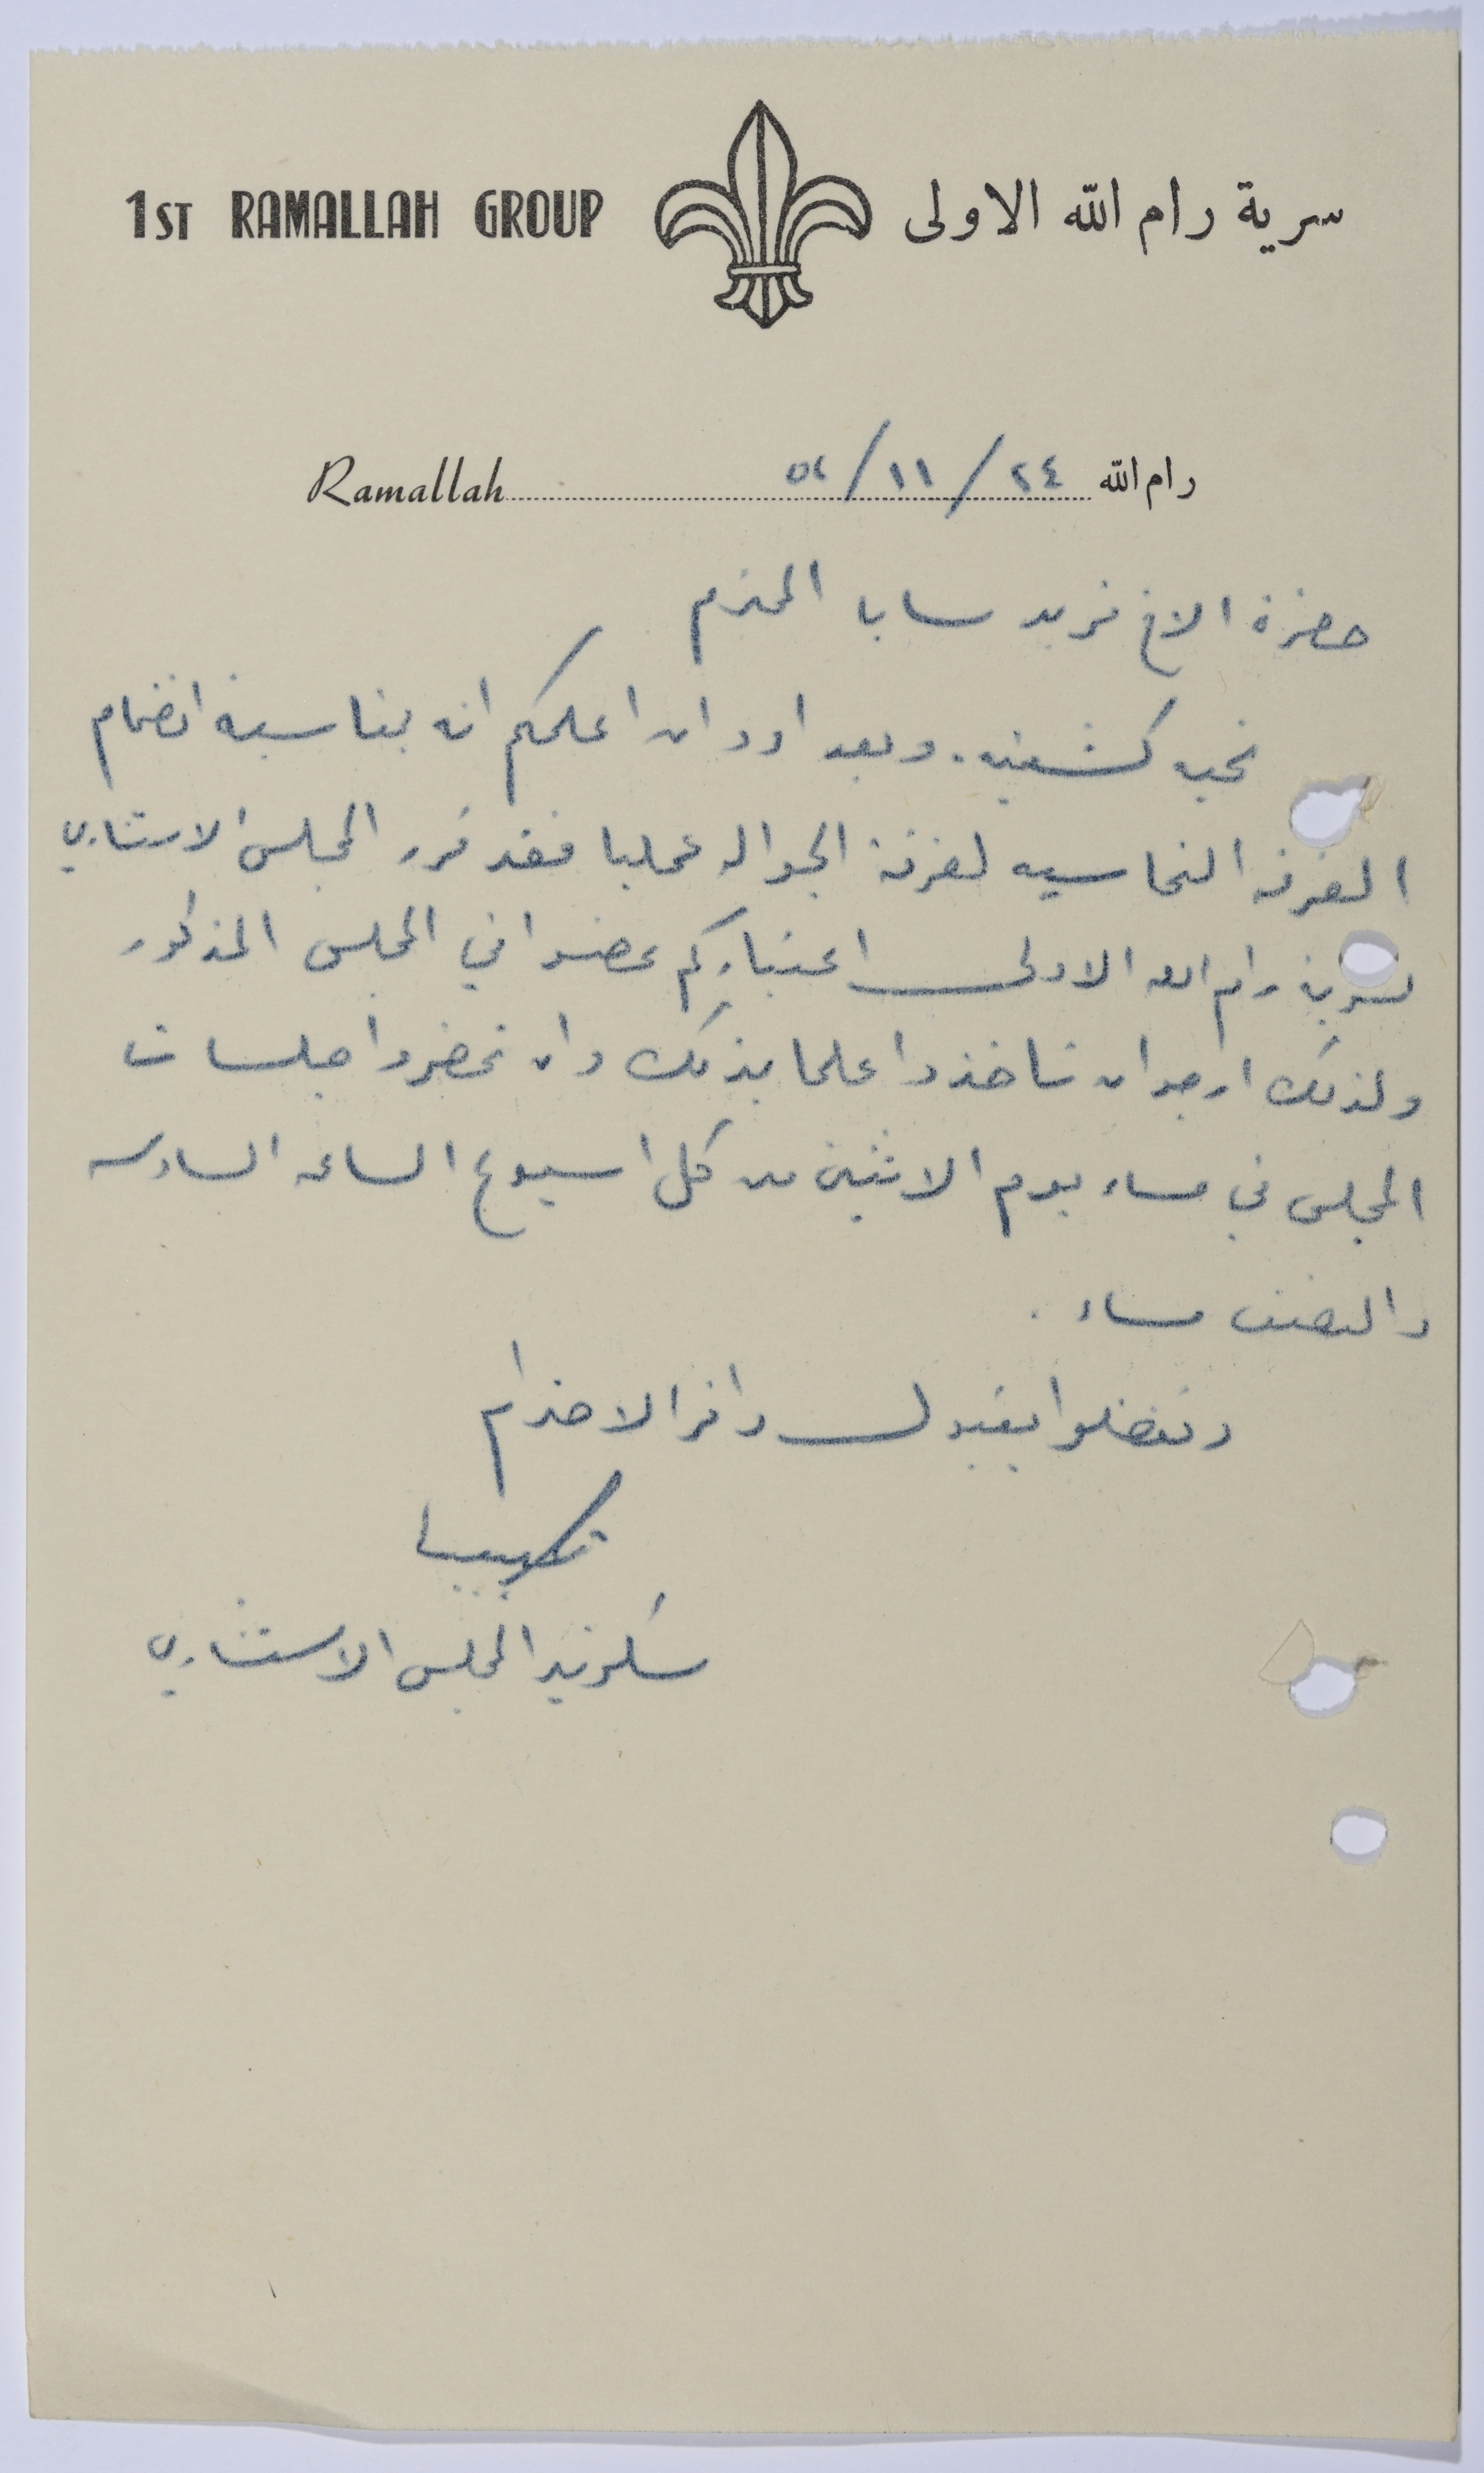 1ST RAMALLAH GROUP سرية رام الله الاولى
Ramallah رام الله ٢٤ / ١١ / ٥٢
حضرة الاخ فريد سابا المحترم
تحيه كشفيه . وبعد اود ان اعلمكم انه بمناسبة انضمام
الفرقه النحاسيه لفرقة الجواله عمليا فقد قرر المجلس الاستشاري
لسرية رام الله الاولى اعتباركم عضوا في المجلس المذكور
ولذلك ارجو ان تاخذوا علما بذلك وان تحضروا جلسات
المجلس في مساء يوم الاثنين من كل اسبوع الساعه السادسه
والنصف مساء .
وتفضلوا بقبول وافر الاحترام
سكرتير المجلس الاستشاري